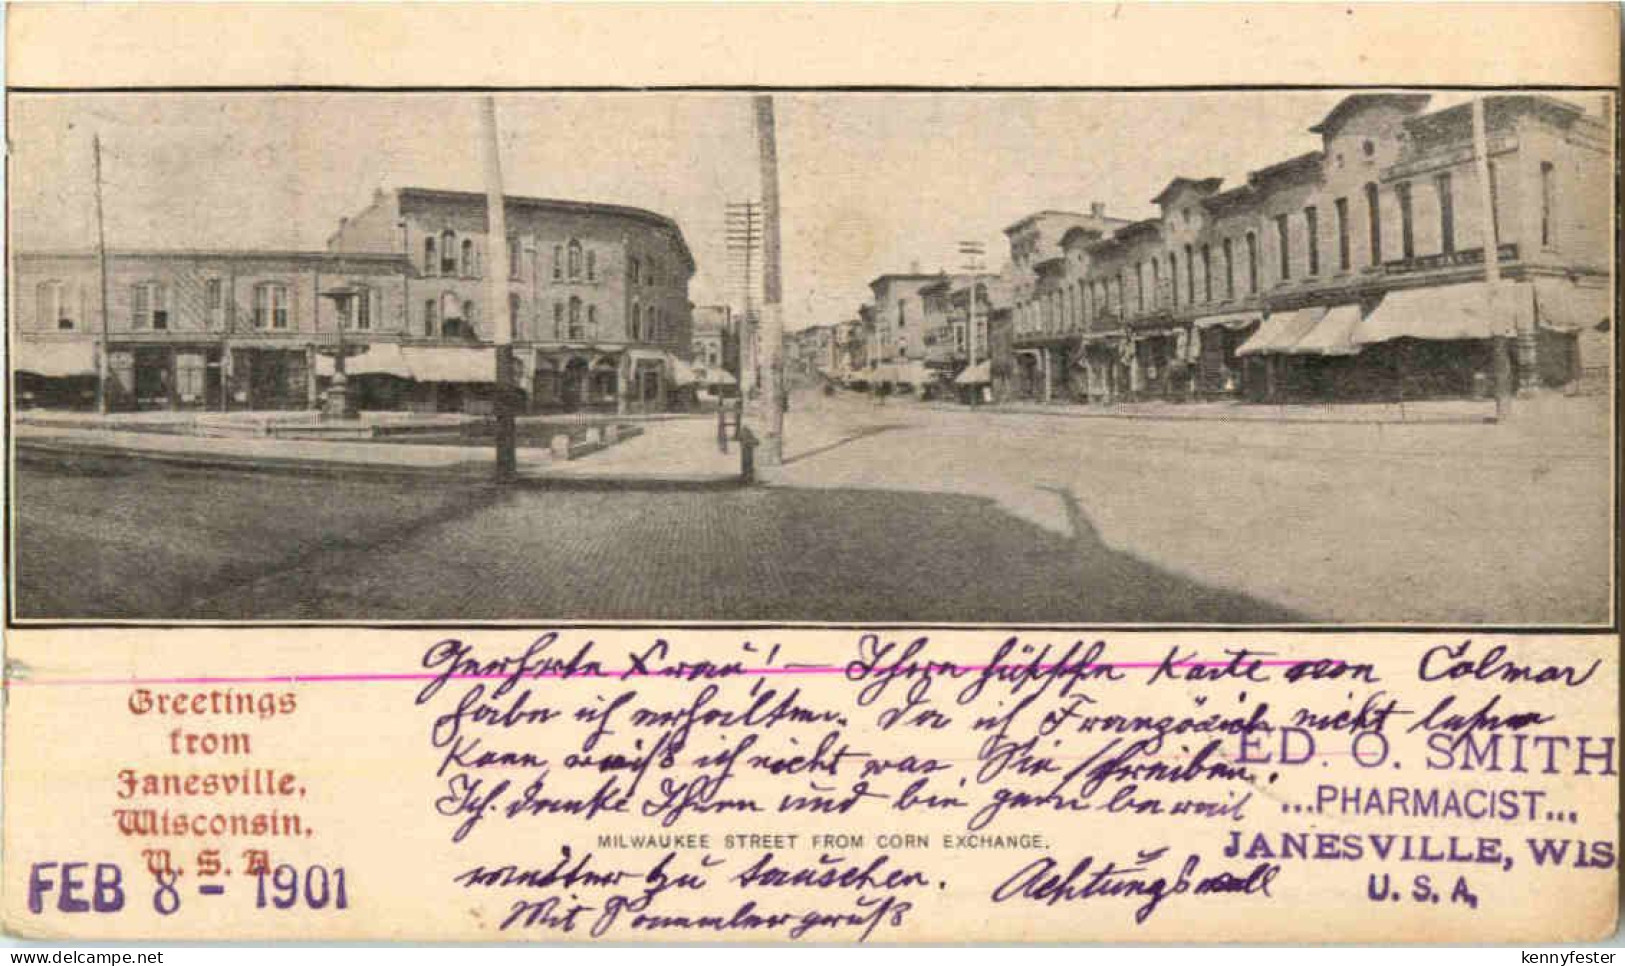 Geehrte Frau! — Ihre hübsche Karte von Colmar
habe ich erhalten. Da ich Französisch nicht lesen
kann weiß ich nicht was Sie schreiben.
Ich danke Ihnen und bin gern bereit
MILWAUKEE STREET FROM CORN EXCHANGE.
weiter zu tauschen. Achtungsvoll
Mit Sammlergruß
Greetings
from
Janesville,
Wisconsin,
U. S. A.
FEB 8 - 1901
ED. O. SMITH
...PHARMACIST...
JANESVILLE, WIS
U. S. A.
delcampe.net
kennyfester